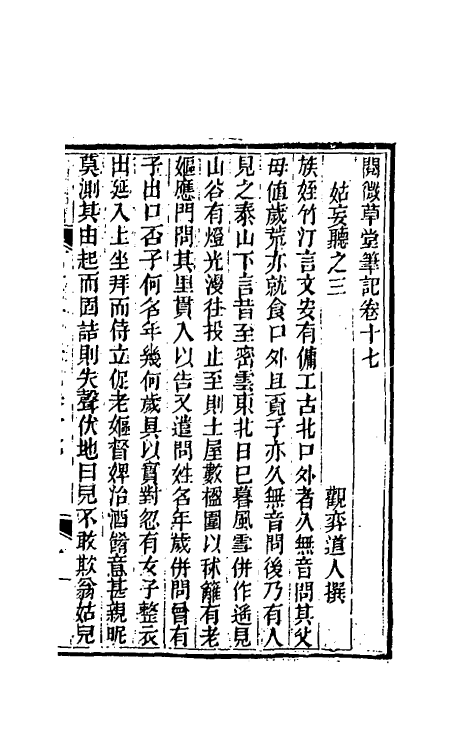 閱微草堂筆記卷十七
姑妄聽之三　觀弈道人撰
族姪竹汀言文安有傭工古北口外者久無音問其父
母值歲荒亦就食口外且覓子亦久無音問後乃有人
見之泰山下言昔至密雲東北日已暮風雪併作遥見
山谷有燈光漫往投止至則土屋數楹圍以秫籬有老
嫗應門問其里貫入以告又遣問姓名年歲併問曾有
子出口否子何名年幾何歲具以實對忽有女子整衣
出延入上坐拜而侍立促老嫗督婢治酒餚意甚親昵
莫測其由起而固詰則失聲伏地曰兒不敢欺翁姑兒